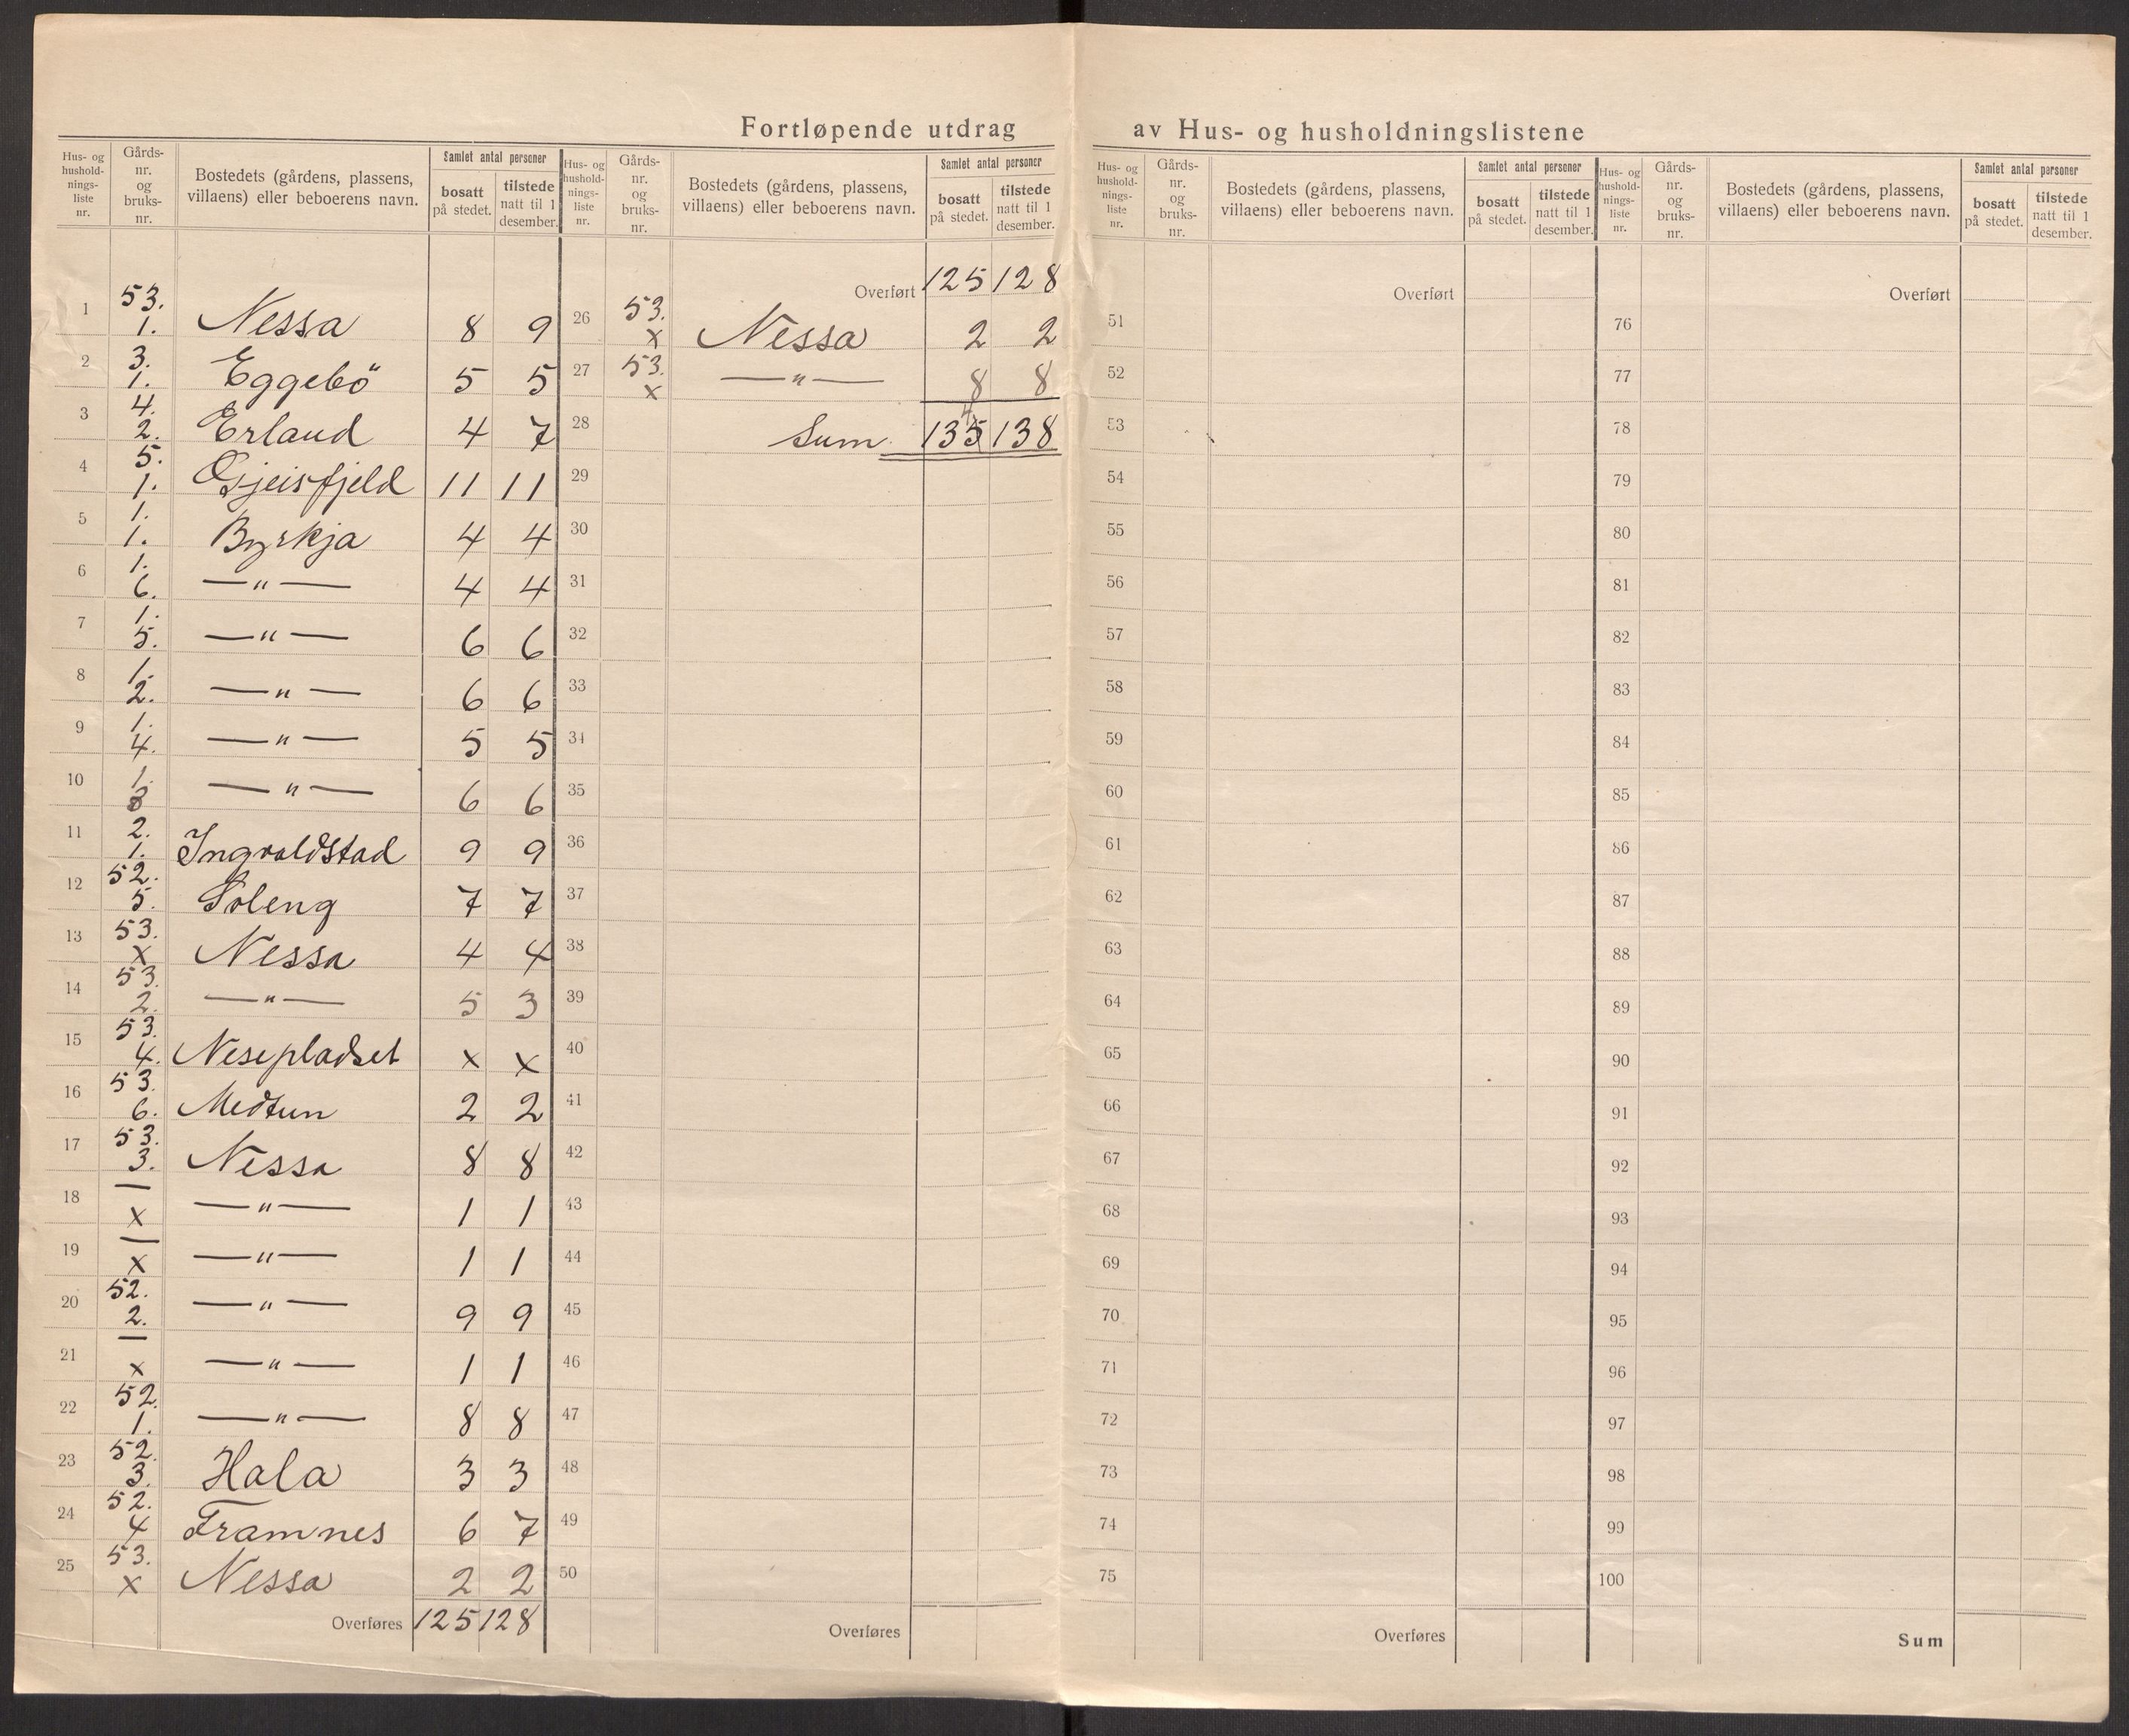 Fortløpende utdrag av Hus- og husholdningslistene
Hus- og husholdningsliste nr. | Gårdsnr. og bruksnr. | Bostedets (gårdens, plassens, villaens) eller beboerens navn. | Samlet antal personer bosatt på stedet. | tilstede natt til 1 desember.
1 | 53. 1. | Nessa | 8 | 9
2 | 3. 1. | Eggebö | 5 | 5
3 | 4. 2. | Erland | 4 | 7
4 | 5. 1. | Gjeisfjeld | 11 | 11
5 | 1. 1. | Byrkja | 4 | 4
6 | 1. 6. | —"— | 4 | 4
7 | 1. 5. | —"— | 6 | 6
8 | 1. 2. | —"— | 6 | 6
9 | 1. 4. | —"— | 5 | 5
10 | 1. | —"— | 6 | 6
11 | 2. 1. | Ingvaldstad | 9 | 9
12 | 52. 5. | Soleng | 7 | 7
13 | 53. x | Nessa | 4 | 4
14 | 53. 2. | —"— | 5 | 3
15 | 53. 4. | Nesepladset | x | x
16 | 53. 6. | Medtun | 2 | 2
17 | 53. 3. | Nessa | 8 | 8
18 | — x | —"— | 1 | 1
19 | — x | —"— | 1 | 1
20 | 52. 2. | —"— | 9 | 9
21 | — x | —"— | 1 | 1
22 | 52. 1. | —"— | 8 | 8
23 | 52. 3. | Hala | 3 | 3
24 | 52. 4 | Framnes | 6 | 7
25 | 53. x | Nessa | 2 | 2
Overføres 125 128
Hus- og husholdningsliste nr. | Gårdsnr. og bruksnr. | Bostedets (gårdens, plassens, villaens) eller beboerens navn. | Samlet antal personer bosatt på stedet. | tilstede natt til 1 desember.
Overført 125 128
26 | 53. x | Nessa | 2 | 2
27 | 53. x | —"— | 8 | 8
4
28 | Sum | 135 | 138
29
30
31
32
33
34
35
36
37
38
39
40
41
42
43
44
45
46
47
48
49
50
Overføres
Hus- og husholdningsliste nr. | Gårdsnr. og bruksnr. | Bostedets (gårdens, plassens, villaens) eller beboerens navn. | Samlet antal personer bosatt på stedet. | tilstede natt til 1 desember.
Overført
51
52
53
54
55
56
57
58
59
60
61
62
63
64
65
66
67
68
69
70
71
72
73
74
75
Overføres
Hus- og husholdningsliste nr. | Gårdsnr. og bruksnr. | Bostedets (gårdens, plassens, villaens) eller beboerens navn. | Samlet antal personer bosatt på stedet. | tilstede natt til 1 desember.
Overført
76
77
78
79
80
81
82
83
84
85
86
87
88
89
90
91
92
93
94
95
96
97
98
99
100
Sum